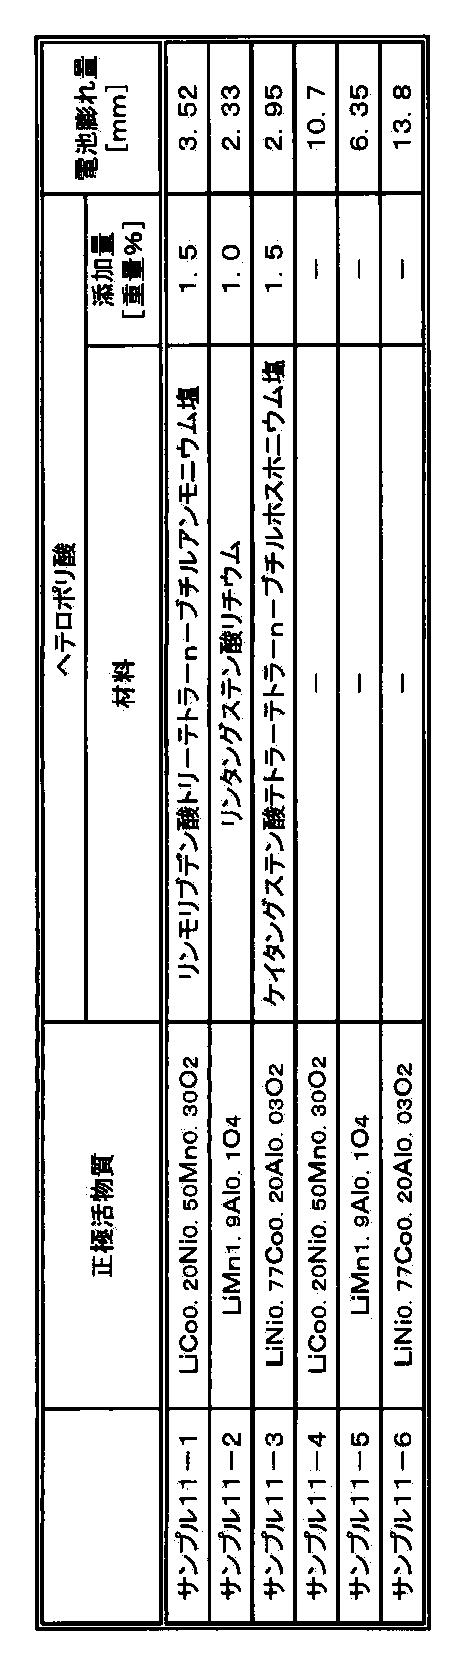 正極活物質 ヘテロポリ酸 電池膨れ量
[mm]
材料 添加量
[重量%]
サンプル11－1 LiCo0.20Ni0.50Mn0.30O2 リンモリブデン酸トリーテトラーn－ブチルアンモニウム塩 1.5 3.52
サンプル11－2 LiMn1.9Al0.1O4 リンタングステン酸リチウム 1.0 2.33
サンプル11－3 LiNi0.77Co0.20Al0.03O2 ケイタングステン酸テトラーテトラーn－ブチルホスホニウム塩 1.5 2.95
サンプル11－4 LiCo0.20Ni0.50Mn0.30O2 － － 10.7
サンプル11－5 LiMn1.9Al0.1O4 － － 6.35
サンプル11－6 LiNi0.77Co0.20Al0.03O2 － － 13.8